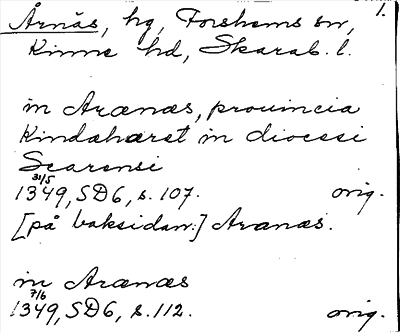 1.
Årnäs, hg, Forshems sn,
Kinne hd, Skarab. l.
in Aranæs, prouincia
Kindahæret in diocesi
Scarensi
31/5
1349, SD6, s. 107. orig.
[på baksidan:] Aranæs.
in Aranæs
7/6
1349, SD6, s. 112. orig.